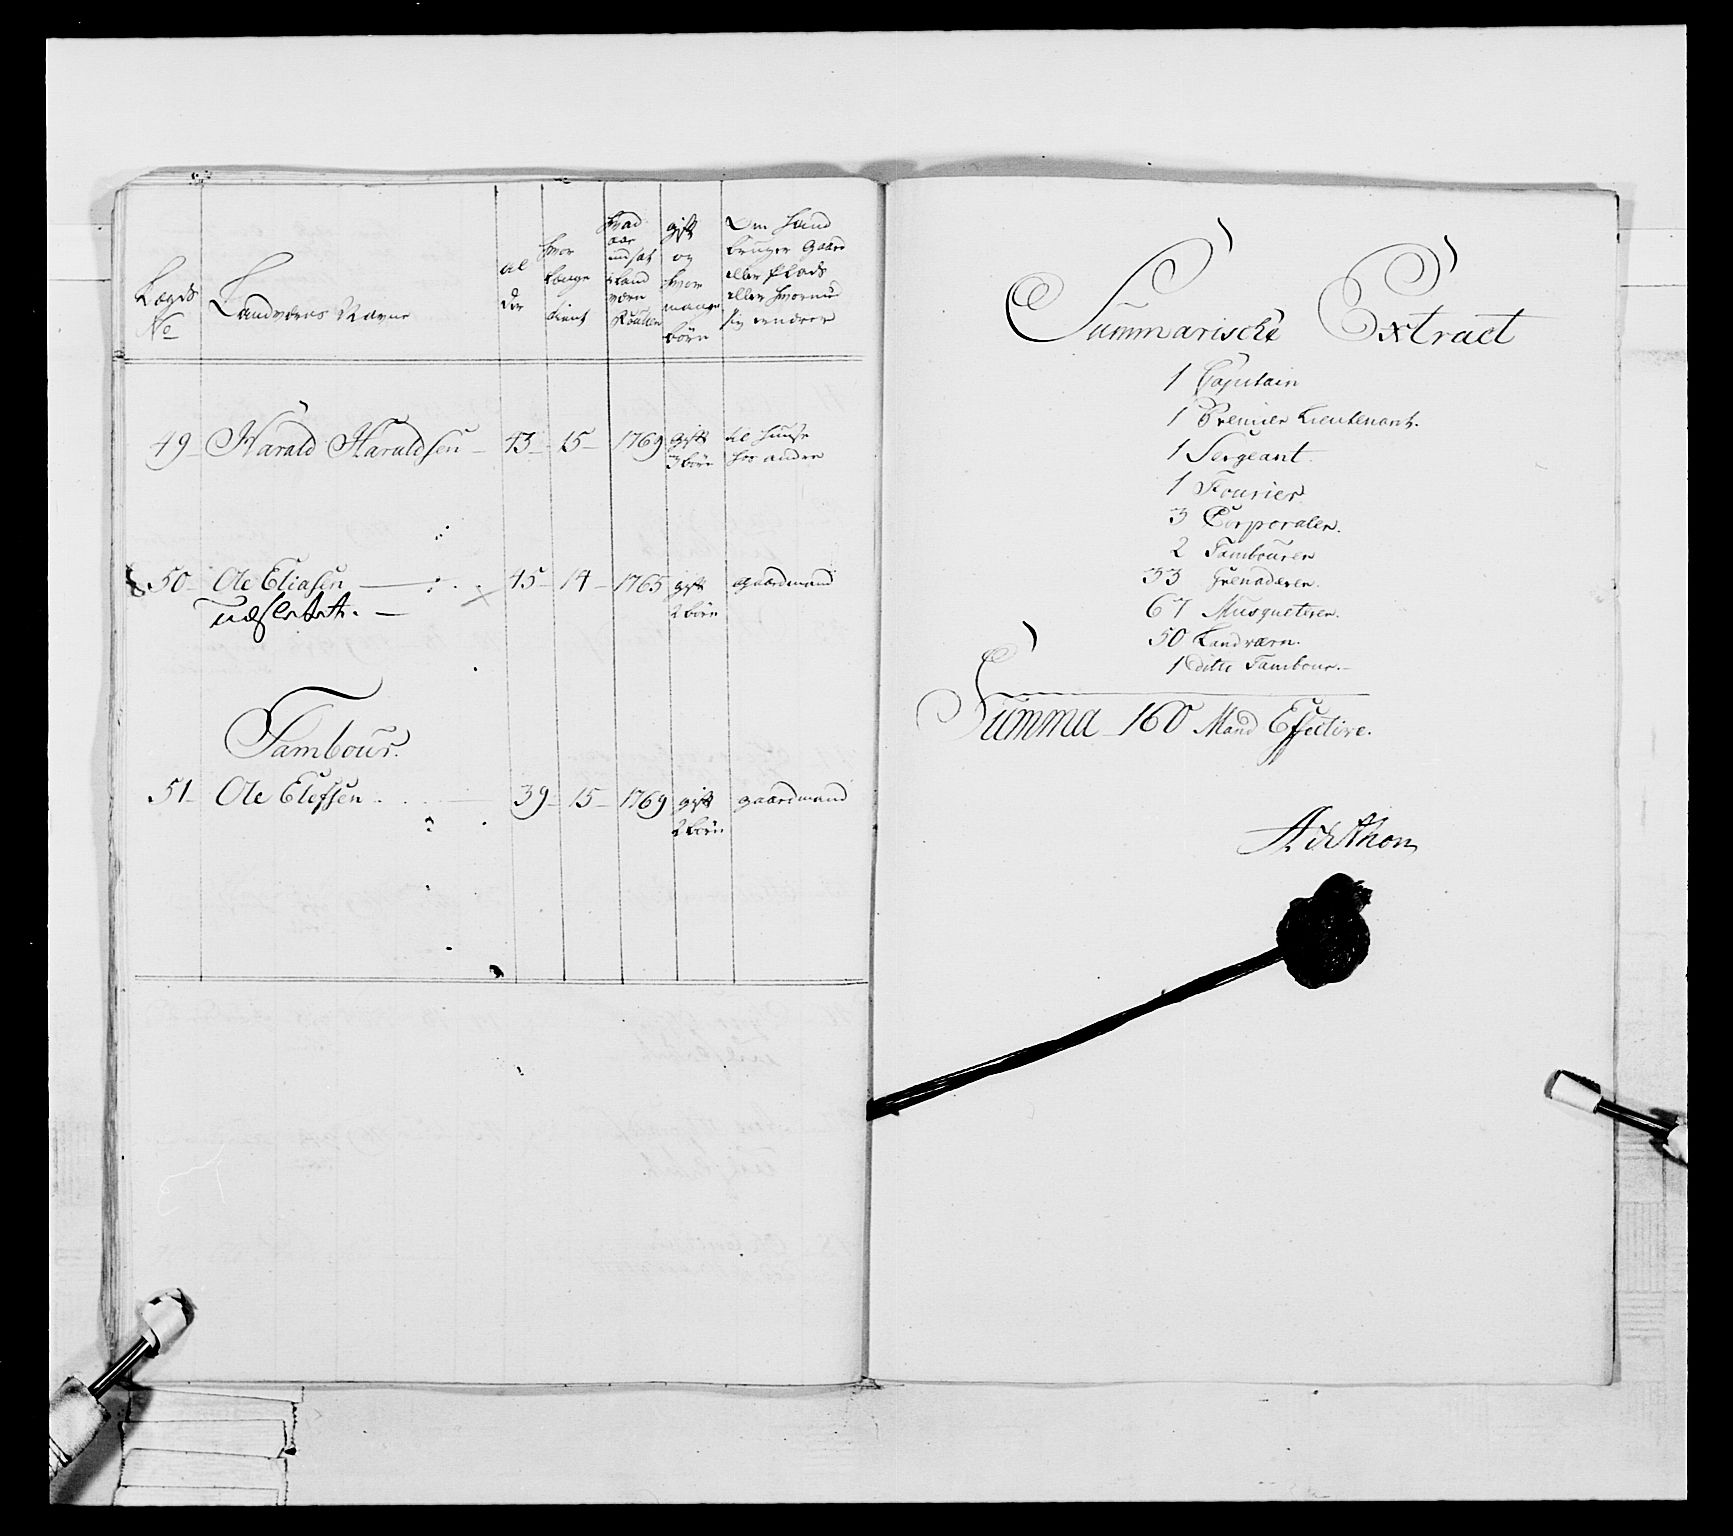 Lægds
No
Landværns Navne
al
der
hvor
længe
tient
hvad
aar
indsat
i Land
værn
Roullen
gift
og
hvor
mange
børn
Om hand
bruger Gaard
eller Plads
eller hvormed
sig ernærer
49 Harald Haruldsen 43 15 1769 gift til huuse
3 børn hos andre
50 Ole Eliasen 45 14 1765 gift gaardmand
udsledtet. 2 børn
Tambour.
51 Ole Elefsen 39 15 1769 gift gaardmand
2 børn
Summarische Extract
1 Capitain
1 Premier Lieutenant.
1 Sergeant.
1 Fourier
3 Corporaler.
2 Tambourer
33 Grenaderer.
67 Musqueterer.
50 Landværn.
1 ditto Tambour.
Summa 160 Mand Effective.